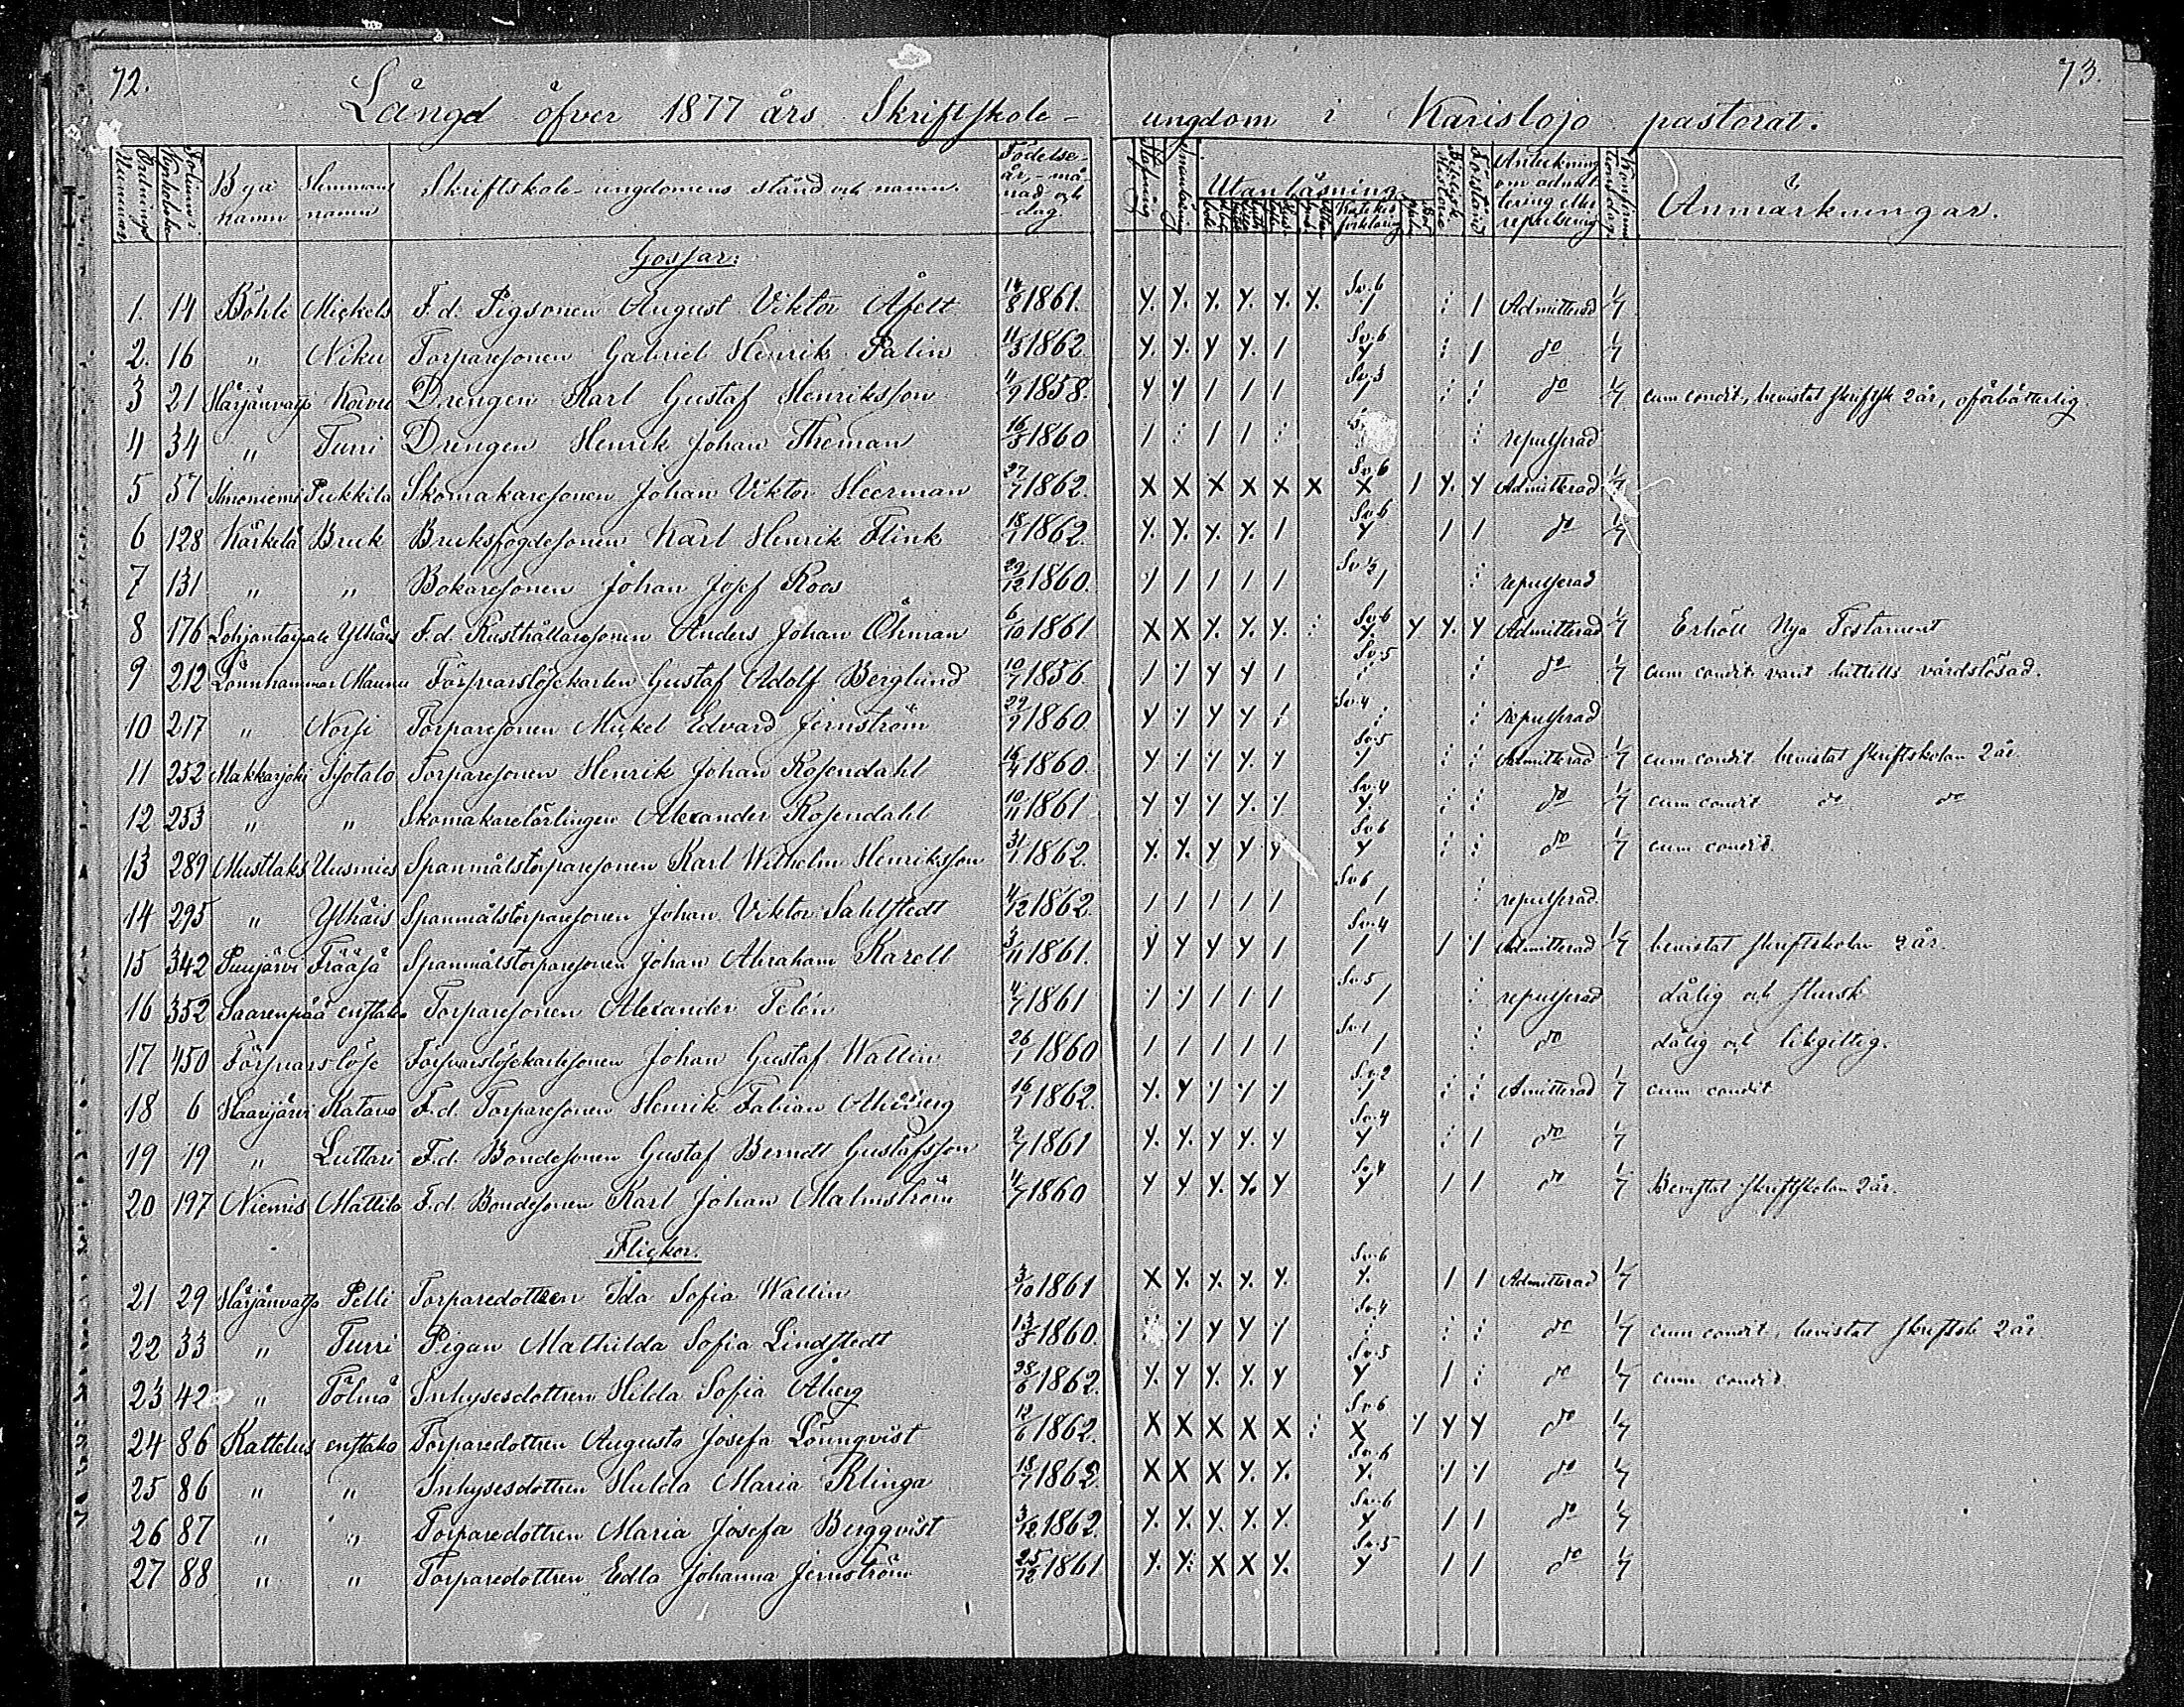 72.
73.
Längd öfver 1877 års Skriftskole-ungdom i Karislojo pastorat.
Ordnings Nummer Folium i Kyrkoboken Bya namn Hemmans namn Skriftskole-ungdomens stånd och namn. Födelse-år,-månad och -dag. Utanläsning. Biblisk Historie Förstånd Anteckning om admittering eller repulsering Anmärkningar.
Gossar:
1. 14 Böhle Mickels F. d. Pigsonen August Viktor Åfelt 14/8 1861. Y. Y. Y. Y. Y. Y. Sv. 6 / : / Admitterad 1/7
2. 16 " Niku Torparesonen Gabriel Henrik Palin 11/3 1862 Y. Y. Y Y. / Sv. 6 Y : / do 1/7
3 21 Härjänvatsa Koivu Drengen Karl Gustaf Henriksson 11/9 1858. Y Y / / / Sv. 3 / : : do 1/7 cum condit, bevistat skriftsk 2 år, oförbätterlig.
4 34 " Turri Drengen Henrik Johan Theman 16/3 1860 / : / / : : repulserad
5 57 Immoniemi Pukkila Skomakaresonen Johan Viktor Heerman 27/7 1862. X X X X X X Sv. 6 X / Y. Y Admitterad 1/7
6 128 Kärkelä Bruk Bruksfogdesonen Karl Henrik Flink 18/7 1862. Y. Y. Y. Y. / Sv. 6 Y / / do 1/7
7 131 " " Bokaresonen Johan Josef Roos 29/12 1860. / / / / / / : repulserad
8 176 Lohjantaipale Ylhäis F. d. Rusthållaresonen Anders Johan Öhman 6/10 1861 X X Y. Y. Y. : Sv. 6 Y. Y Y. Y Admitterad 1/7 Erhöll Nya Testament
9 212 Lönnhammar Maunu Försvarslösekarlen Gustaf Adolf Berglund 10/7 1856. / / Y Y / Sv. 5 : : do 1/7 cum condit. varit hittills vårdslösad.
10 217 " Norsi Torparesonen Mickel Edvard Jernström 29/9 1860. Y / Y Y / Sv. 4 : : repulserad
11 252 Makkarjoki Isotalo Torparesonen Henrik Johan Rosendahl 16/4 1860. Y / Y. Y. Y Sv. 5 / : : Admitterad 1/7 cum condit. bevistat skriftskolan 2 år
12 253 " " Skomakarelärlingen Alexander Rosendahl 10/11 1861 Y Y Y Y. Y Sv. 4 Y. : : do 1/7 cum condit do do
13 289 Mustlaks Uusmies Spanmålstorparesonen Karl Wilhelm Henriksson 31/7 1862. Y. Y. Y Y Y Sv. 6 Y : : do 1/7 cum condit.
14 295 " Ylhäis Spanmålstorparesonen Johan Viktor Sahlstedt 4/12 1862. / / / / / Sv. 6 / : repulserad.
15 342 Puujärvi Frääsä Spanmålstorparesonen Johan Abraham Karell 3/11 1861. Y Y Y Y / Sv. 4 / / / Admitterad 1/7 bevistat skriftskolan 2 år.
16 352 Saarenpää enstaka Torparesonen Alexander Telén 4/7 1861 / / / / / Sv. 5 / : repulserad dålig och slursk
17 450 Försvarslöse Försvarslösekarlssonen Johan Gustaf Wallin 26/1 1860 / / / / / Sv. 1 / : do dålig och likgiltig.
18 6 Haarjärvi Katava F. d. Torparesonen Henrik Fabian Ahlberg 16/7 1862. Y. Y / / Y Sv. 2 / : : Amitterad 1/7 cum condit
19 19 " Luttari F. d. Bondesonen Gustaf Berndt Gustafsson 2/7 1861 Y. Y. Y Y. Y Sv. 4 Y : / do 1/7
20 197 Niemis Mattila F. d. Bondesonen Karl Johan Malmström 4/7 1860 Y Y Y. Y. Y Sv. 4 Y / / do 1/7 Bevistat skriftskolan 2 år.
Flickor.
21 29 Härjänvatsa Pelli Torparedottren Ida Sofia Wallin 3/10 1861 X Y. Y. Y. Y. Sv. 6 Y. / / Admitterad 1/7
22 33 " Turri Pigan Mathilda Sofia Lindstedt 13/5 1860. / Y Y / Sv. 4 : : : do 1/7 cum condit, bevistat skriftsk 2 år.
23 42 " Tölmä Inhysesdottren Hilda Sofia Åberg 28/6 1862. Y. Y Y. Y. Y Sv. 5 Y / : do 1/7 cum condit.
24 86 Kattelus enstaka Torparedottren Augusta Josefa Lönnqvist 12/6 1862. X X X X X : Sv. 6 X Y Y Y do 1/7
25 86 " " Inhysesdottren Hulda Maria Klinga 18/7 1862. X X X Y. Y. Sv. 6 Y. / / do 1/7
26 87 " " Torparedottren Maria Josefa Bergqvist 3/12 1862. Y. Y. Y. Y. Y. Sv. 6 Y / / do 1/7
27 88 " " Torparedottren Edla Johanna Jernström 25/12 1861 Y. Y. X X Y. Sv. 5 Y / / do 1/7